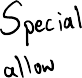 Special
allow